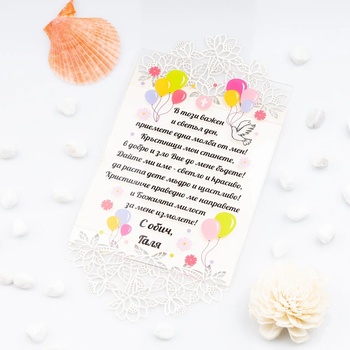 В този важен
и светъл ден,
приемете една молба от мен!
Кръстници мои станете,
в добро и зло Вие до мене бъдете!
Дайте ми име - светло и красиво,
да расте дете мъдро и щастливо!
Християнче праведно ме направете
и Божията милост
за мене измолете!
С обич,
Галя